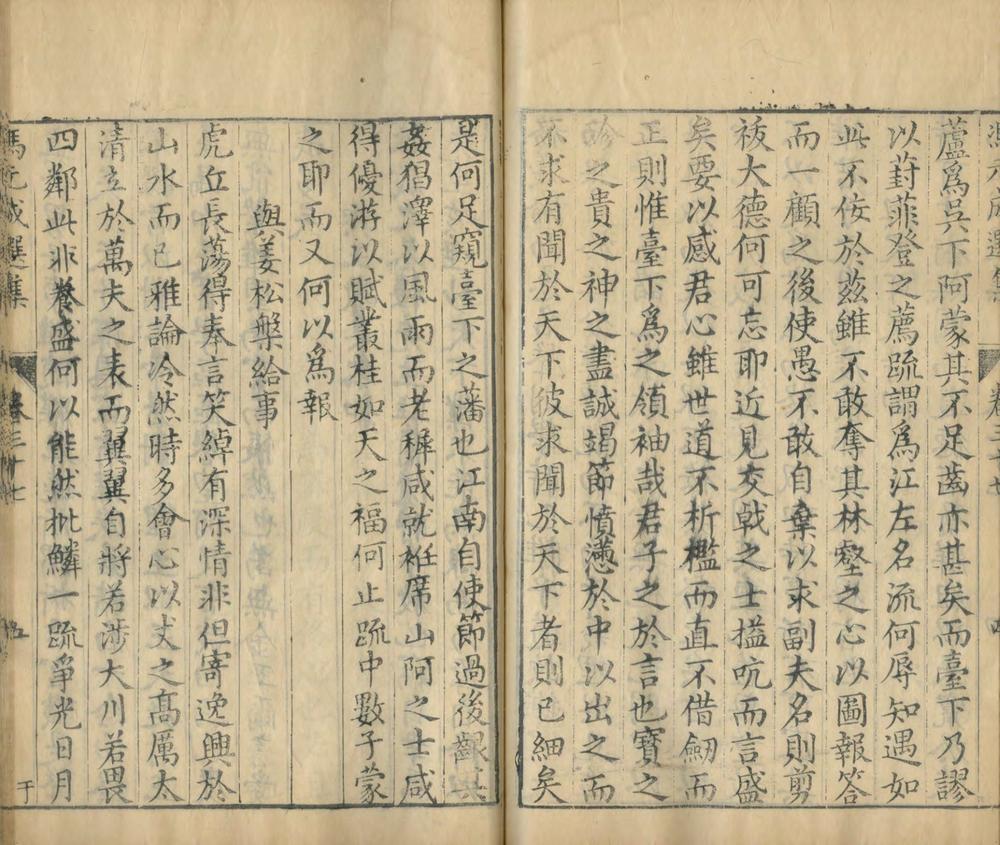 蘆爲吳下阿蒙其不足齒亦甚矣而臺下乃謬
以葑菲登之薦疏謂爲江左名流何辱知遇如
此不佞於茲雖不敢奪其林壑之心以圖報答
而一顧之後使愚不敢自棄以求副夫名則剪
祓大德何可忘耶近見交戟之士搤吭而言盛
矣要以感君心雖世道不折檻而直不借劒而
正則惟臺下爲之領袖哉君子之於言也寶之
之貴之神之盡誠竭節憤懣於中以出之而
不求有聞於天下彼求聞於天下者則已細矣
是何足窺臺下之藩也江南自使節過後
姦猖澤以風雨而老穉咸就袵席山阿之士咸
得優游以賦叢桂如天之福何止疏中數子蒙
之耶而又何以爲報
與姜松槃給事
虎丘長蕩得奉言笑綽有深情非但寄逸興於
山水而已雅論冷然時多會心以丈之高厲太
清立於萬夫之表而翼翼自將若涉大川若畏
四鄰此非養盛何以能然批鱗一疏爭光日月
馮元成選集
卷三十七
五